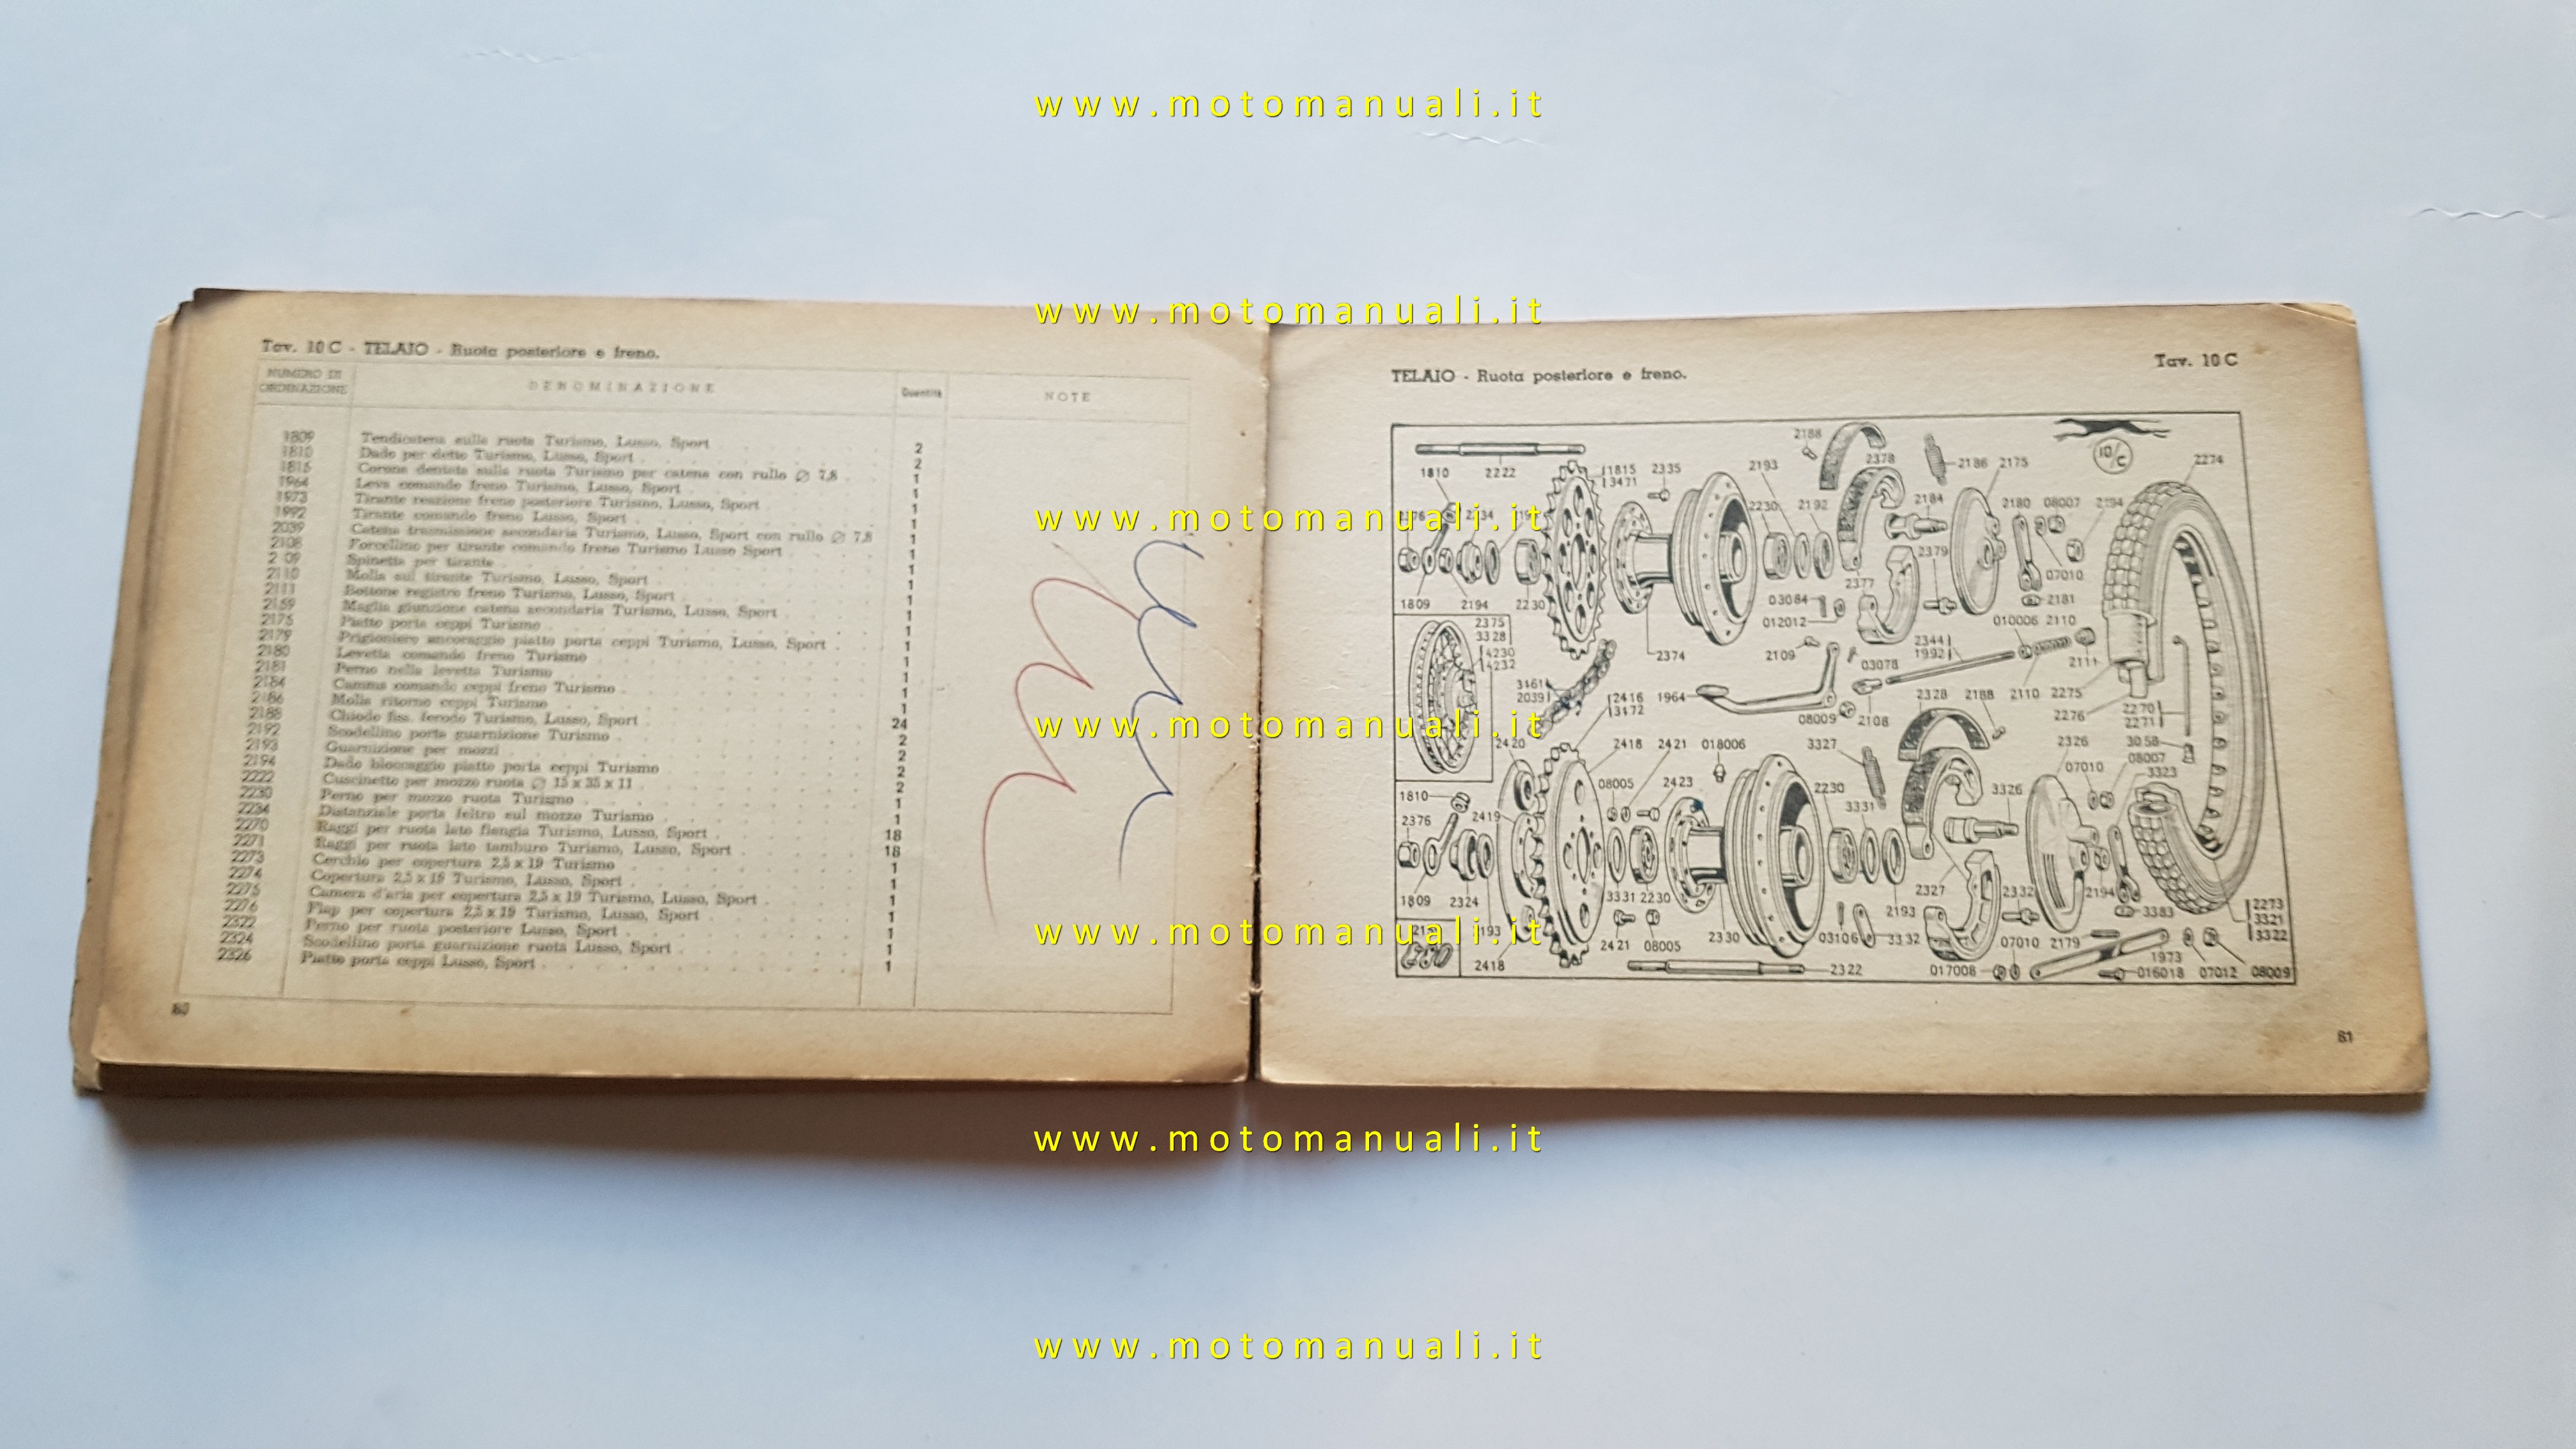 www.motomanuali.it
www.motomanuali.it
www.motomanuali.it
www.motomanuali.it
www.motomanuali.it
www.motomanuali.it
www.motomanuali.it
Tav. 10 C - TELAIO - Ruota posteriore e freno.
NUMERO DI ORDINAZIONE DENOMINAZIONE Quantità NOTE
1809 Tendicatena sulla ruota Turismo, Lusso, Sport 2
1810 Dado per detto Turismo, Lusso, Sport 2
1815 Corona dentata sulla ruota Turismo per catena con rullo ∅ 7,8 1
1964 Leva comando freno Turismo, Lusso, Sport 1
1973 Tirante reazione freno posteriore Turismo, Lusso, Sport 1
1992 Tirante comando freno Lusso, Sport 1
2039 Catena trasmissione secondaria Turismo, Lusso, Sport con rullo ∅ 7,8 1
2108 Forcellino per tirante comando freno Turismo Lusso Sport 1
2 09 Spinetta per tirante 1
2110 Molla sul tirante Turismo, Lusso, Sport 1
2111 Bottone registro freno Turismo, Lusso, Sport 1
2159 Maglia giunzione catena secondaria Turismo, Lusso, Sport 1
2175 Piatto porta ceppi Turismo 1
2179 Prigioniero ancoraggio piatto porta ceppi Turismo, Lusso, Sport 1
2180 Levetta comando freno Turismo 1
2181 Perno nella levetta Turismo 1
2184 Camma comando ceppi freno Turismo 1
2186 Molla ritorno ceppi Turismo 1
2188 Chiodo fiss. ferodo Turismo, Lusso, Sport 24
2192 Scodellino porta guarnizione Turismo 2
2193 Guarnizione per mozzi 2
2194 Dado bloccaggio piatto porta ceppi Turismo 2
2222 Cuscinetto per mozzo ruota ∅ 15 x 35 x 11 2
2230 Perno per mozzo ruota Turismo 1
2234 Distanziale porta feltro sul mozzo Turismo 1
2270 Raggi per ruota lato flangia Turismo, Lusso, Sport 18
2271 Raggi per ruota lato tamburo Turismo, Lusso, Sport 18
2273 Cerchio per copertura 2,5 x 19 Turismo 1
2274 Copertura 2,5 x 19 Turismo, Lusso, Sport 1
2275 Camera d'aria per copertura 2,5 x 19 Turismo, Lusso, Sport 1
2276 Flap per copertura 2,5 x 19 Turismo, Lusso, Sport 1
2322 Perno per ruota posteriore Lusso, Sport 1
2324 Scodellino porta guarnizione ruota Lusso, Sport 1
2326 Piatto porta ceppi Lusso, Sport 1
80
Tav. 10 C
TELAIO - Ruota posteriore e freno.
10/C
1810 2222 1815 3471 2335 2193 2188 2378 2186 2175 2274
2230 2192 2184 2180 08007 2194
1809 2194 2230 2374 03084 012012 2377 2379 07010 2181
2375 3328 4230 4232
2109 03078 2344 1992 010006 2110 2111
3161 2039 2416 3472 1964 08009 2108 2328 2188 2110 2275
2276 2270 2271
2420 2418 2421 018006 3327 2326 3058
08005 2423 2230 3331 3326 07010 08007 3323
1810 2376 2419
1809 2324 3331 2230 2193 2327 2332 2194 3383 2273 3321 3322
2418 2421 08005 2330 03106 3332 07010 2179
2322 017008 1973 016018 07012 08009
81